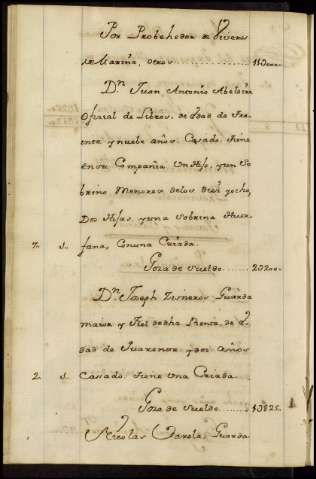 Por Probehedor de Viveres
de Marina, otros ........ 1100..
Dn. Juan Antonio Abeldº
Oficial de Libros, de edad de Tre-
inta y nuebe años. Casado. tiene
en su Compañia Un Hijo, y un So-
brino Menores de los diez y ocho,
Dos Hijas, y una Sobrina Huer-
7. 1. fana, Con una Criada.
Goza de Sueldo ...... 20200..
Dn. Joseph Zisneros, Guarda
maior y Fiel de dha Renta, de e-
dad de Quarenta y dos Años
2. 1. Cassado. tiene Una Criada
Goza de Sueldo ...... 10825.
Nicolas Varela, Guarda